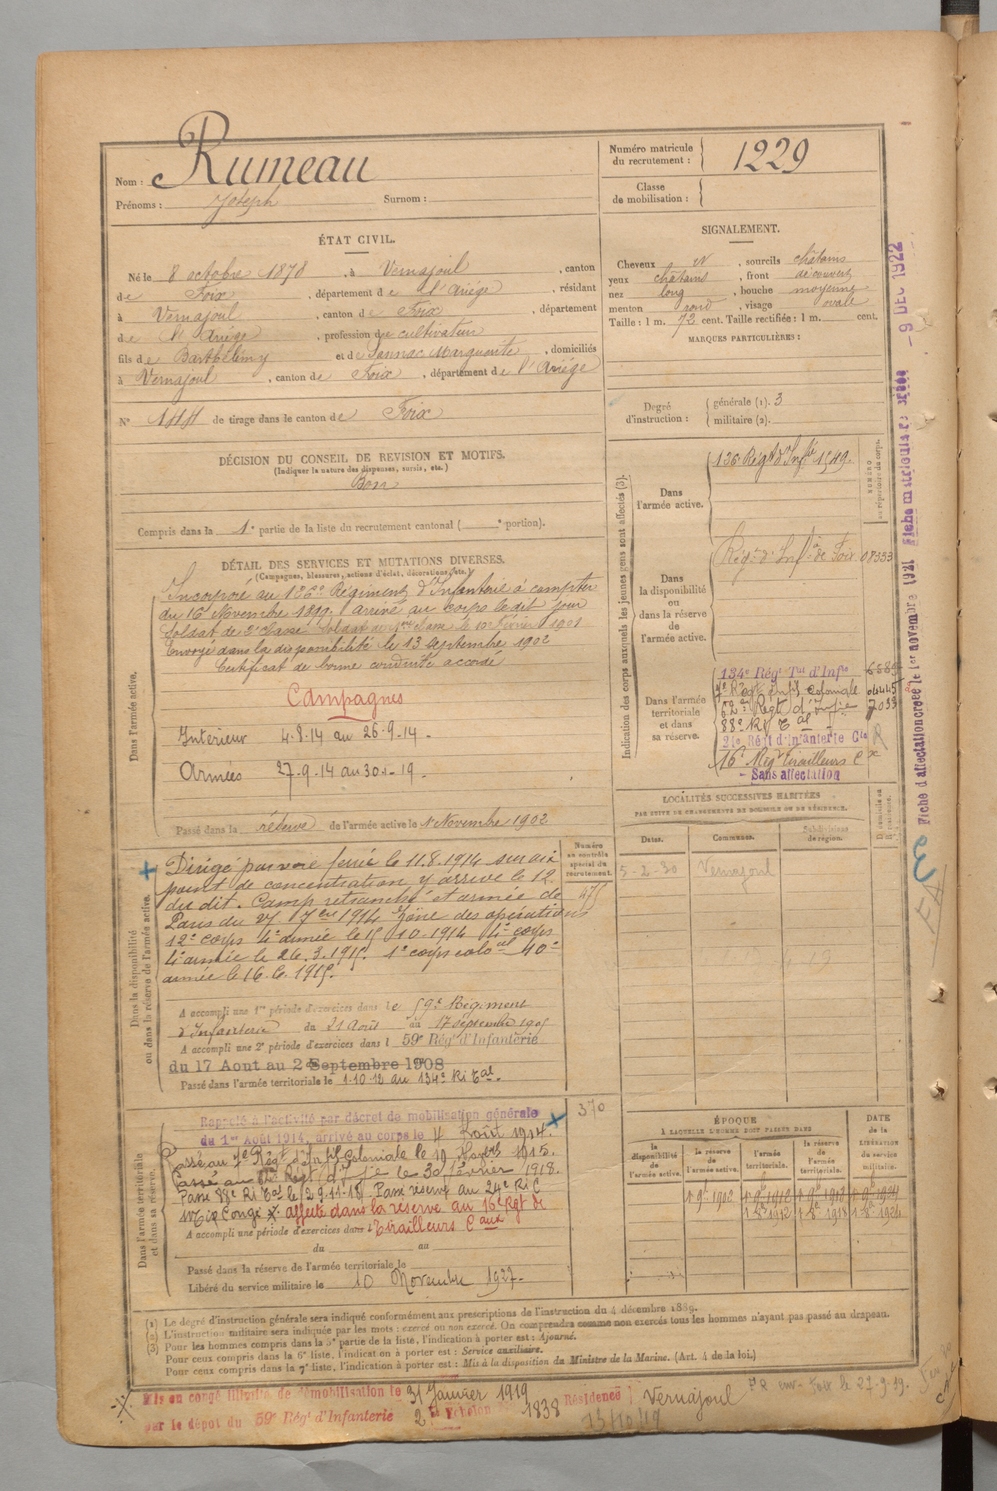 Nom : Rumeau
Prénoms : Joseph Surnom :
Numéro matricule du recrutement : 1229
Classe de mobilisation :
ÉTAT CIVIL.
Né le 8 octobre 1878, à Vernajoul, canton
de Foix, département de l'Ariège, résidant
à Vernajoul, canton de Foix, département
de l'Ariège, profession de cultivateur
fils de Barthélemy et de Sannac Marguerite, domiciliés
à Vernajoul, canton de Foix, département de l'Ariège
N° de tirage dans le canton de Foix
SIGNALEMENT.
Cheveux N, sourcils châtains
yeux châtains, front découvert
nez long, bouche moyenne
menton rond, visage ovale
Taille : 1 m. 72 cent. Taille rectifiée : 1 m. cent.
MARQUES PARTICULIÈRES :
Degré d'instruction : générale (1). 3
militaire (2).
DÉCISION DU CONSEIL DE REVISION ET MOTIFS.
(Indiquer la nature des dispenses, sursis, etc.)
Bon
Compris dans la 1e partie de la liste du recrutement cantonal ( e portion).
DÉTAIL DES SERVICES ET MUTATIONS DIVERSES.
(Campagnes, blessures, actions d'éclat, décorations, etc.)
Dans l'armée active.
Incorporé au 126e Régiment d'Infanterie à compter
du 16 Novembre 1899, arrivé au corps le dit jour
Soldat de 2e classe Soldat de 1ère classe le 10 Février 1901
Envoyé dans la disponibilité le 13 septembre 1902
Certificat de bonne conduite accordé
Campagnes
Intérieur 4.8.14 au 26.9.14.
Armées 27.9.14 au 30.1.19.
Passé dans la réserve de l'armée active le 1 Novembre 1902
Dans la disponibilité ou dans la réserve de l'armée active.
Dirigé par voie ferrée le 11.8.1914 sur son
point de concentration y arrive le 12
du dit. Camp retranché et armée de
Paris du 27 7bre 1914 Zône des opérations
12e corps 4e armée le 15 10 1914 4e corps
4e armée le 26.3.1915. 1e corps colonial 40e
armée le 16.6.1915.
Numéro au contrôle spécial du recrutement.
475
A accompli une 1re période d'exercices dans le 59e Régiment
d'Infanterie du 21 Août au 17 septembre 1905
A accompli une 2e période d'exercices dans le 59e Régt d'Infanterie
du 17 Aout au 2 Septembre 1908
Passé dans l'armée territoriale le 1-10-12 au 134e RI Tal.
Dans l'armée territoriale et dans sa réserve.
370
Rappelé à l'activité par décret de mobilisation générale
du 1er Août 1914, arrivé au corps le 4 Août 1914.
Passé au 7e Régt d'Infie Coloniale le 19 Novbre 1915.
Passé au 62e Régt d'Infie le 30 Janvier 1918.
Passé 88e RI Tal le 29-11-18 Passé réserve au 24e RI C
affecté dans la réserve au 16e Rgt de
Tirailleurs Caux
A accompli une période d'exercices dans l
du au
Passé dans la réserve de l'armée territoriale le
Libéré du service militaire le 10 Novembre 1927.
Indication des corps auxquels les jeunes gens sont affectés (3).
NUMÉRO au répertoire du corps.
Dans l'armée active.
126e Régt d'Infie 1549.
Dans la disponibilité ou dans la réserve de l'armée active.
Régt d'Infie de Foix 07353
Dans l'armée territoriale et dans sa réserve.
134e Régt Tal d'Infie
7e Régt Infie Coloniale 04445
62e Régt d'Infie 7033
88e RI Tal
24e Régt d'Infanterie Cle
16e Régt Tirailleurs C
- Sans affectation
LOCALITÉS SUCCESSIVES HABITÉES
PAR SUITE DE CHANGEMENTS DE DOMICILE OU DE RÉSIDENCE.
Dates. Communes. Subdivisions de région.
5-2-30 Vernajoul
ÉPOQUE
À LAQUELLE L'HOMME DOIT PASSER DANS
la disponibilité de l'armée active. la réserve de l'armée active. l'armée territoriale. la réserve de l'armée territoriale.
DATE de la LIBÉRATION du service militaire.
1 9bre 1902
Fiche d'affectation créée le 1er novembre 1921 Fiche matriculaire créée - 9 DEC 1922
(1) Le degré d'instruction générale sera indiqué conformément aux prescriptions de l'instruction du 4 décembre 1889.
(2) L'instruction militaire sera indiquée par les mots : exercé ou non exercé. On comprendra comme non exercés tous les hommes n'ayant pas passé au drapeau.
(3) Pour les hommes compris dans la 5e partie de la liste, l'indication à porter est : Ajourné.
Pour ceux compris dans la 6e liste, l'indication à porter est : Service auxiliaire.
Pour ceux compris dans la 7e liste, l'indication à porter est : Mis à la disposition du Ministre de la Marine. (Art. 4 de la loi.)
Mis en congé illimité de démobilisation le 31 Janvier 1919
2e Echelon 1838 Résidence Vernajoul
par le dépot du 59e Régt d'Infanterie 13/10/19